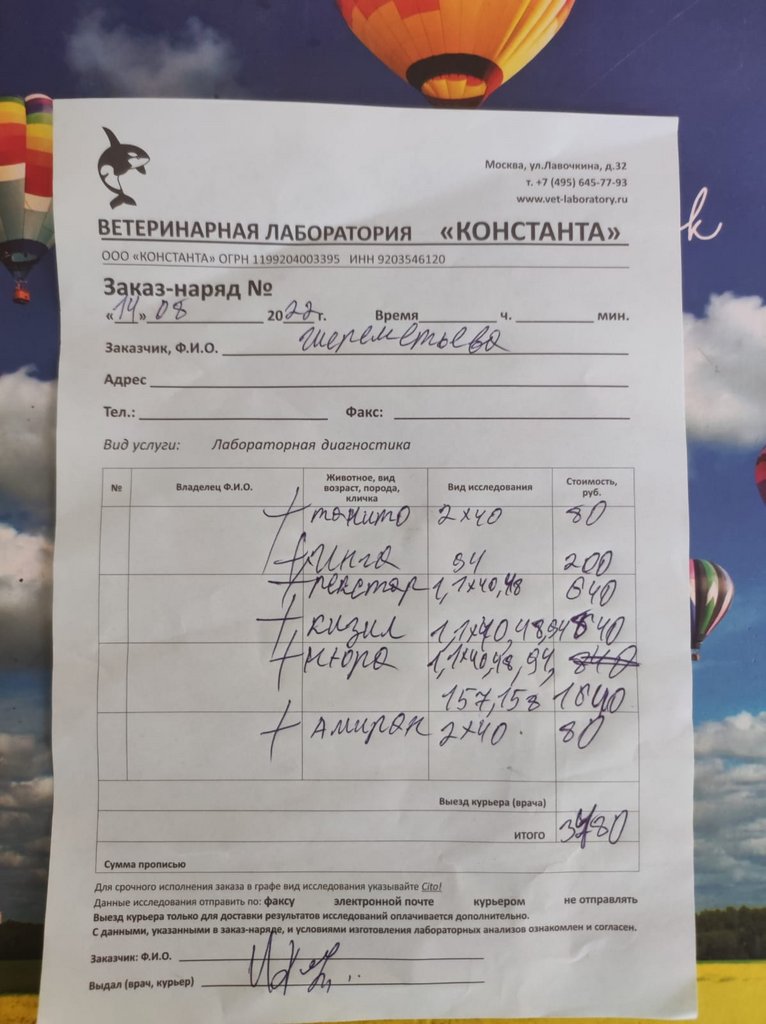 Москва, ул.Лавочкина, д.32
т. +7 (495) 645-77-93
www.vet-laboratory.ru
ВЕТЕРИНАРНАЯ ЛАБОРАТОРИЯ «КОНСТАНТА»
ООО «КОНСТАНТА» ОГРН 1199204003395 ИНН 9203546120
Заказ-наряд №
«14» 08 2022г. Время ч. мин.
Заказчик, Ф.И.О. Шереметьева
Адрес
Тел.: Факс:
Вид услуги: Лабораторная диагностика
№ Владелец Ф.И.О. Животное, вид возраст, порода, кличка Вид исследования Стоимость, руб.
+ танито 2×40 80
+ Инга 94 200
+ рекстар 1,1×40,48 640
+ кизил 1,1×40,48,94 840
+ Нюра 1,1×40,48,94, 840
157,158 1640
+ Амиран 2×40 80
Выезд курьера (врача)
ИТОГО 3480
Сумма прописью
Для срочного исполнения заказа в графе вид исследования указывайте Cito!
Данные исследования отправить по: факсу электронной почте курьером не отправлять
Выезд курьера только для доставки результатов исследований оплачивается дополнительно.
С данными, указанными в заказ-наряде, и условиями изготовления лабораторных анализов ознакомлен и согласен.
Заказчик: Ф.И.О.
Выдал (врач, курьер)
k